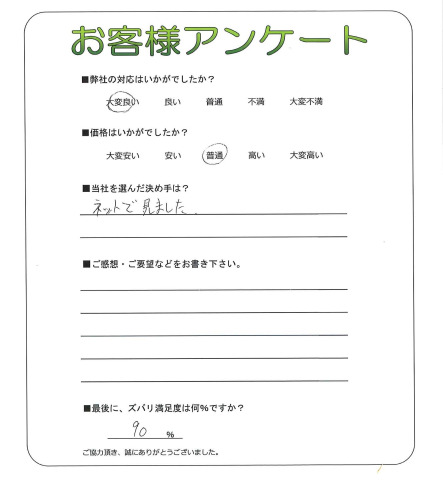 お客様アンケート
■弊社の対応はいかがでしたか？
大変良い 良い 普通 不満 大変不満
■価格はいかがでしたか？
大変安い 安い 普通 高い 大変高い
■当社を選んだ決め手は？
ネットで見ました.
■ご感想・ご要望などをお書き下さい。
■最後に、ズバリ満足度は何％ですか？
90 %
ご協力頂き、誠にありがとうございました。